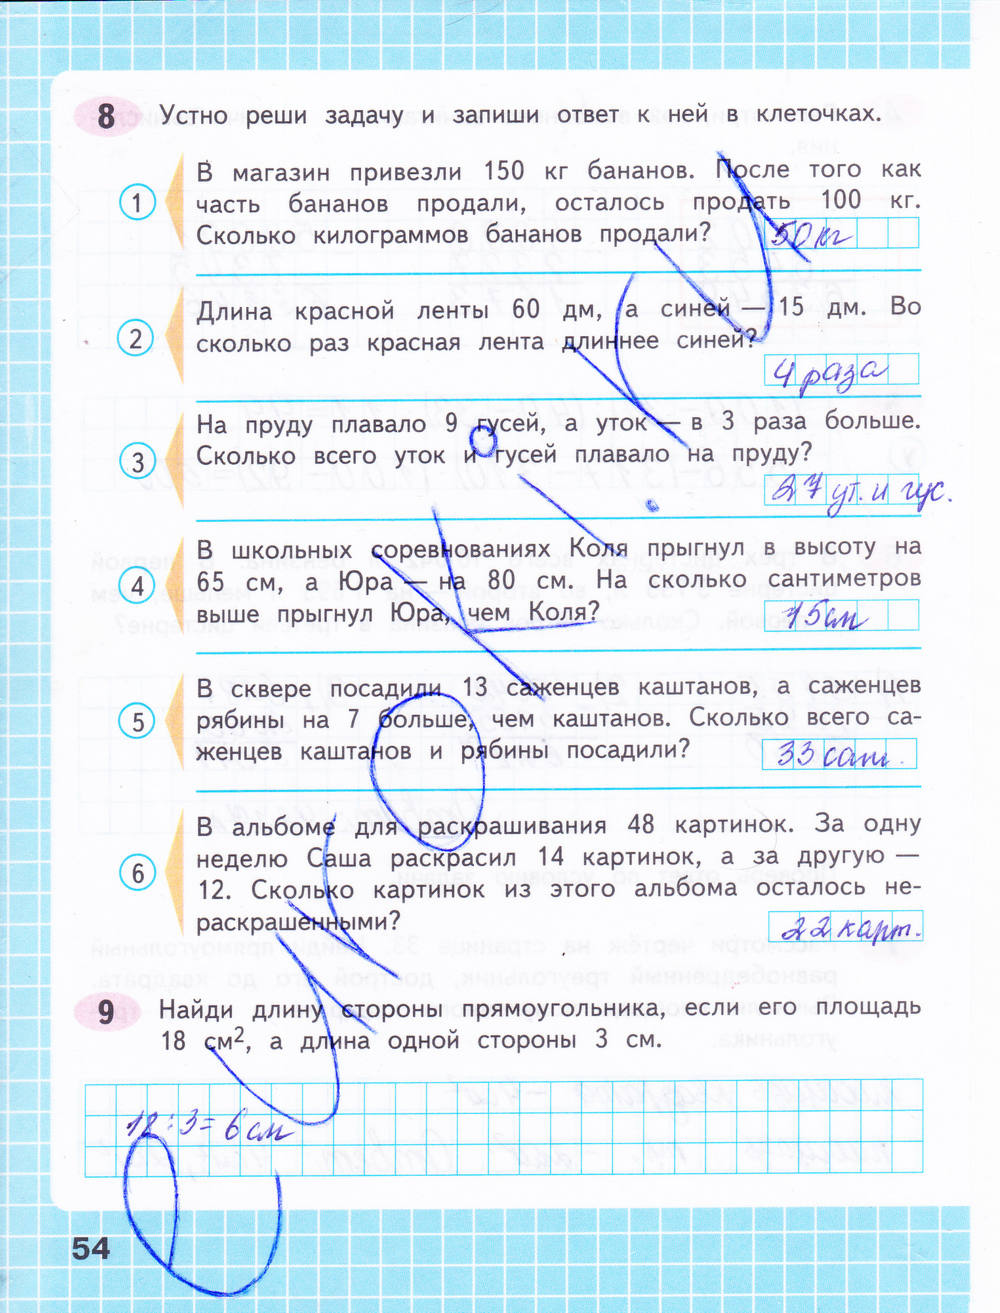 8 Устно реши задачу и запиши ответ к ней в клеточках.
1 В магазин привезли 150 кг бананов. После того как
часть бананов продали, осталось продать 100 кг.
Сколько килограммов бананов продали?
50 кг
2 Длина красной ленты 60 дм, а синей — 15 дм. Во
сколько раз красная лента длиннее синей?
4 раза
3 На пруду плавало 9 гусей, а уток — в 3 раза больше.
Сколько всего уток и гусей плавало на пруду?
27 ут. и гус.
4 В школьных соревнованиях Коля прыгнул в высоту на
65 см, а Юра — на 80 см. На сколько сантиметров
выше прыгнул Юра, чем Коля?
15 см
5 В сквере посадили 13 саженцев каштанов, а саженцев
рябины на 7 больше, чем каштанов. Сколько всего са-
женцев каштанов и рябины посадили?
33 саж.
6 В альбоме для раскрашивания 48 картинок. За одну
неделю Саша раскрасил 14 картинок, а за другую —
12. Сколько картинок из этого альбома осталось не-
раскрашенными?
22 карт.
9 Найди длину стороны прямоугольника, если его площадь
18 см², а длина одной стороны 3 см.
18 : 3 = 6 см
54